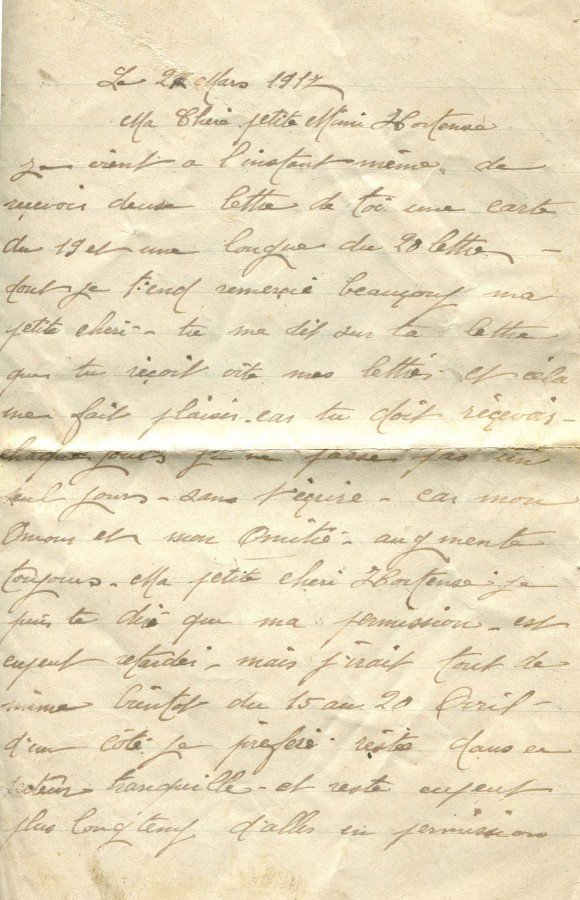 Le 24 Mars 1917
Ma Cheri petite Mimi Hortense
Je vient a l'instant même de
reçevoir deux lettre de toi une carte
du 19 et une longue du 20 lettre -
dont je t'end remerçie beaucouf ma
petite cheri - tu me dit sur ta lettre
que tu reçoit vite mes lettres et cela
me fait plaisir - car tu doit reçevoir -
chaque jours je ne passe pas un
seul jours - sans t'ecrire - car mon
Amour et mon Amitié - augmente
toujours - Ma petite cheri Hortense je
puis te dire que ma permission - est
enpeut retarder - mais j'irait tout de
même bientot du 15 au 20 Avril -
d'un coté je prefere reste dans ce
secteur tranquille - et reste enpeut
plus longtemp d'aller en permission